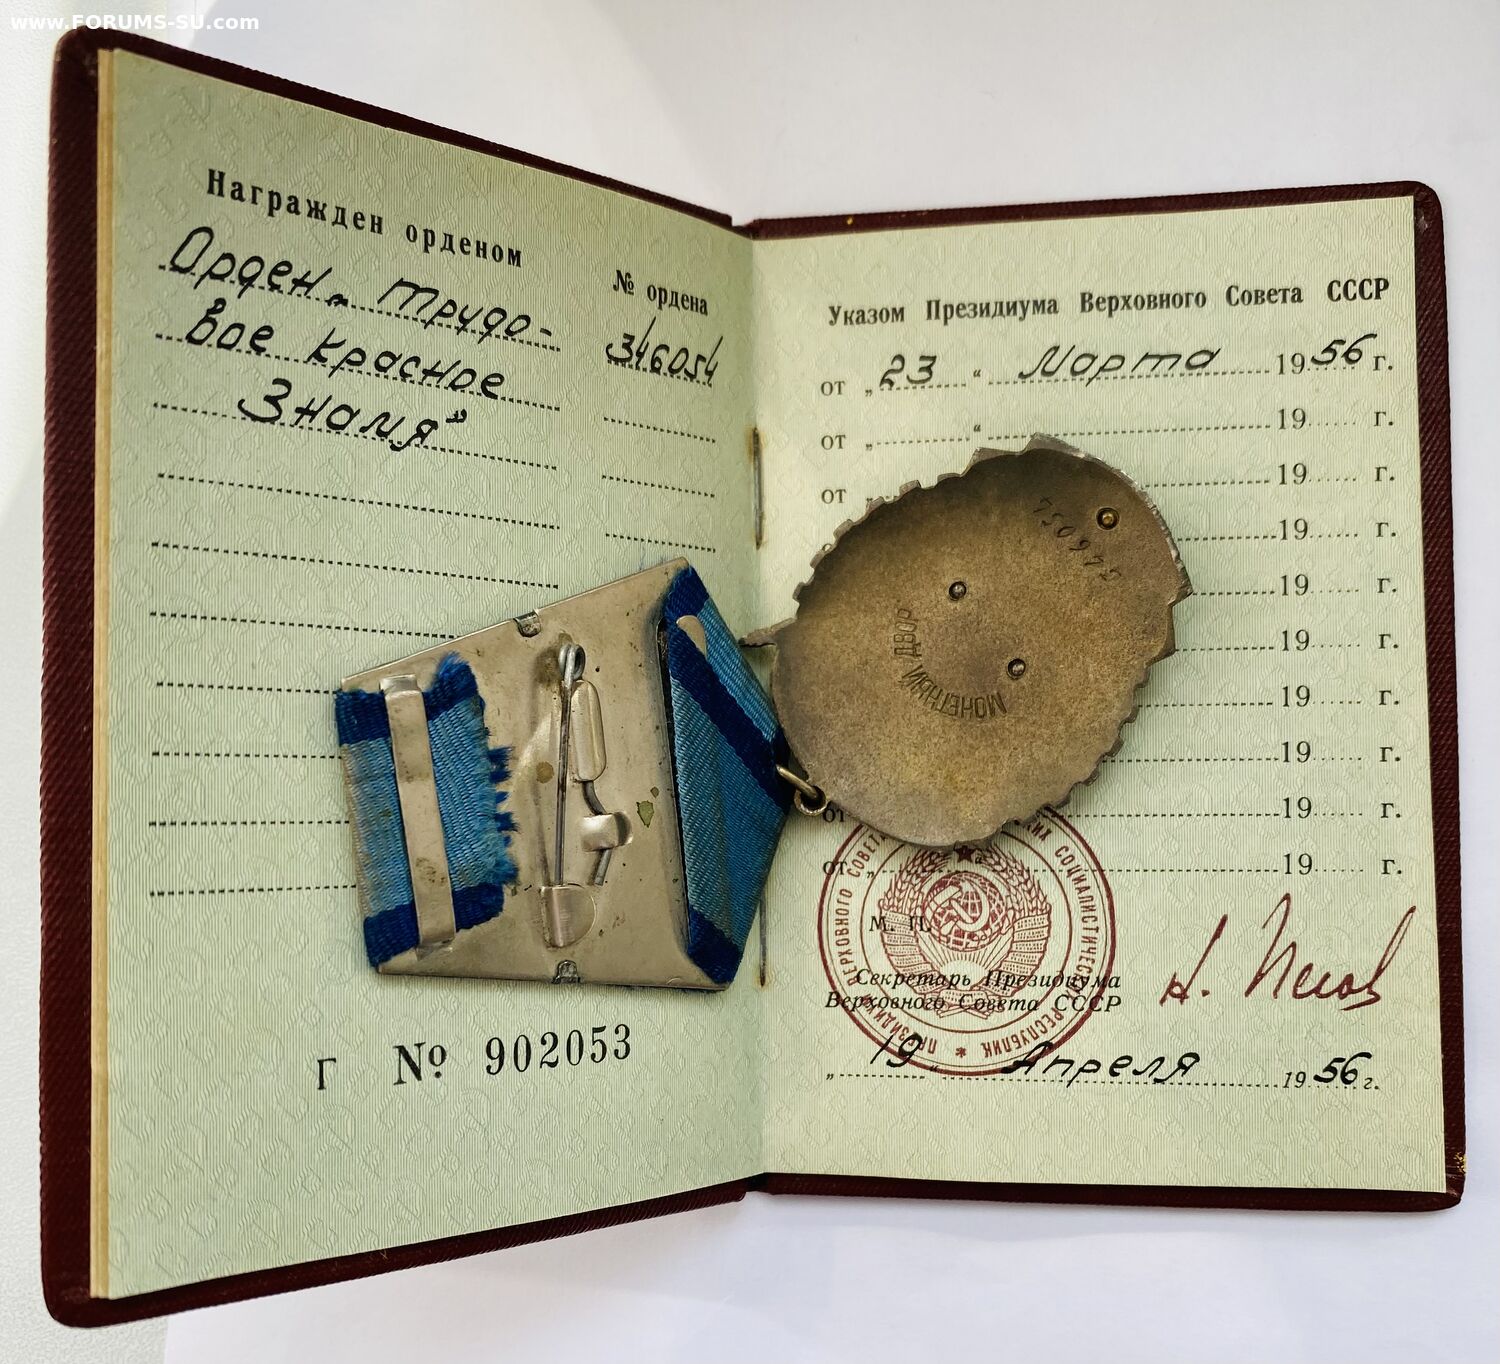 www.FORUMS-SU.com
Награжден орденом
Орден „Трудо-
вое Красное
Знамя"
№ ордена
346054
Г № 902053
Указом Президиума Верховного Совета СССР
от „23" Марта 1956 г.
от „ " 19 г.
от „ 19 г.
19 г.
19 г.
19 г.
19 г.
19 г.
от 19 г.
от „ " 19 г.
М. П.
Секретарь Президиума
Верховного Совета СССР
Н. Пегов
„19" Апреля 1956 г.
346054
МОНЕТНЫЙ ДВОР
ПРЕЗИДИУМ ВЕРХОВНОГО СОВЕТА СОЦИАЛИСТИЧЕСКИХ РЕСПУБЛИК